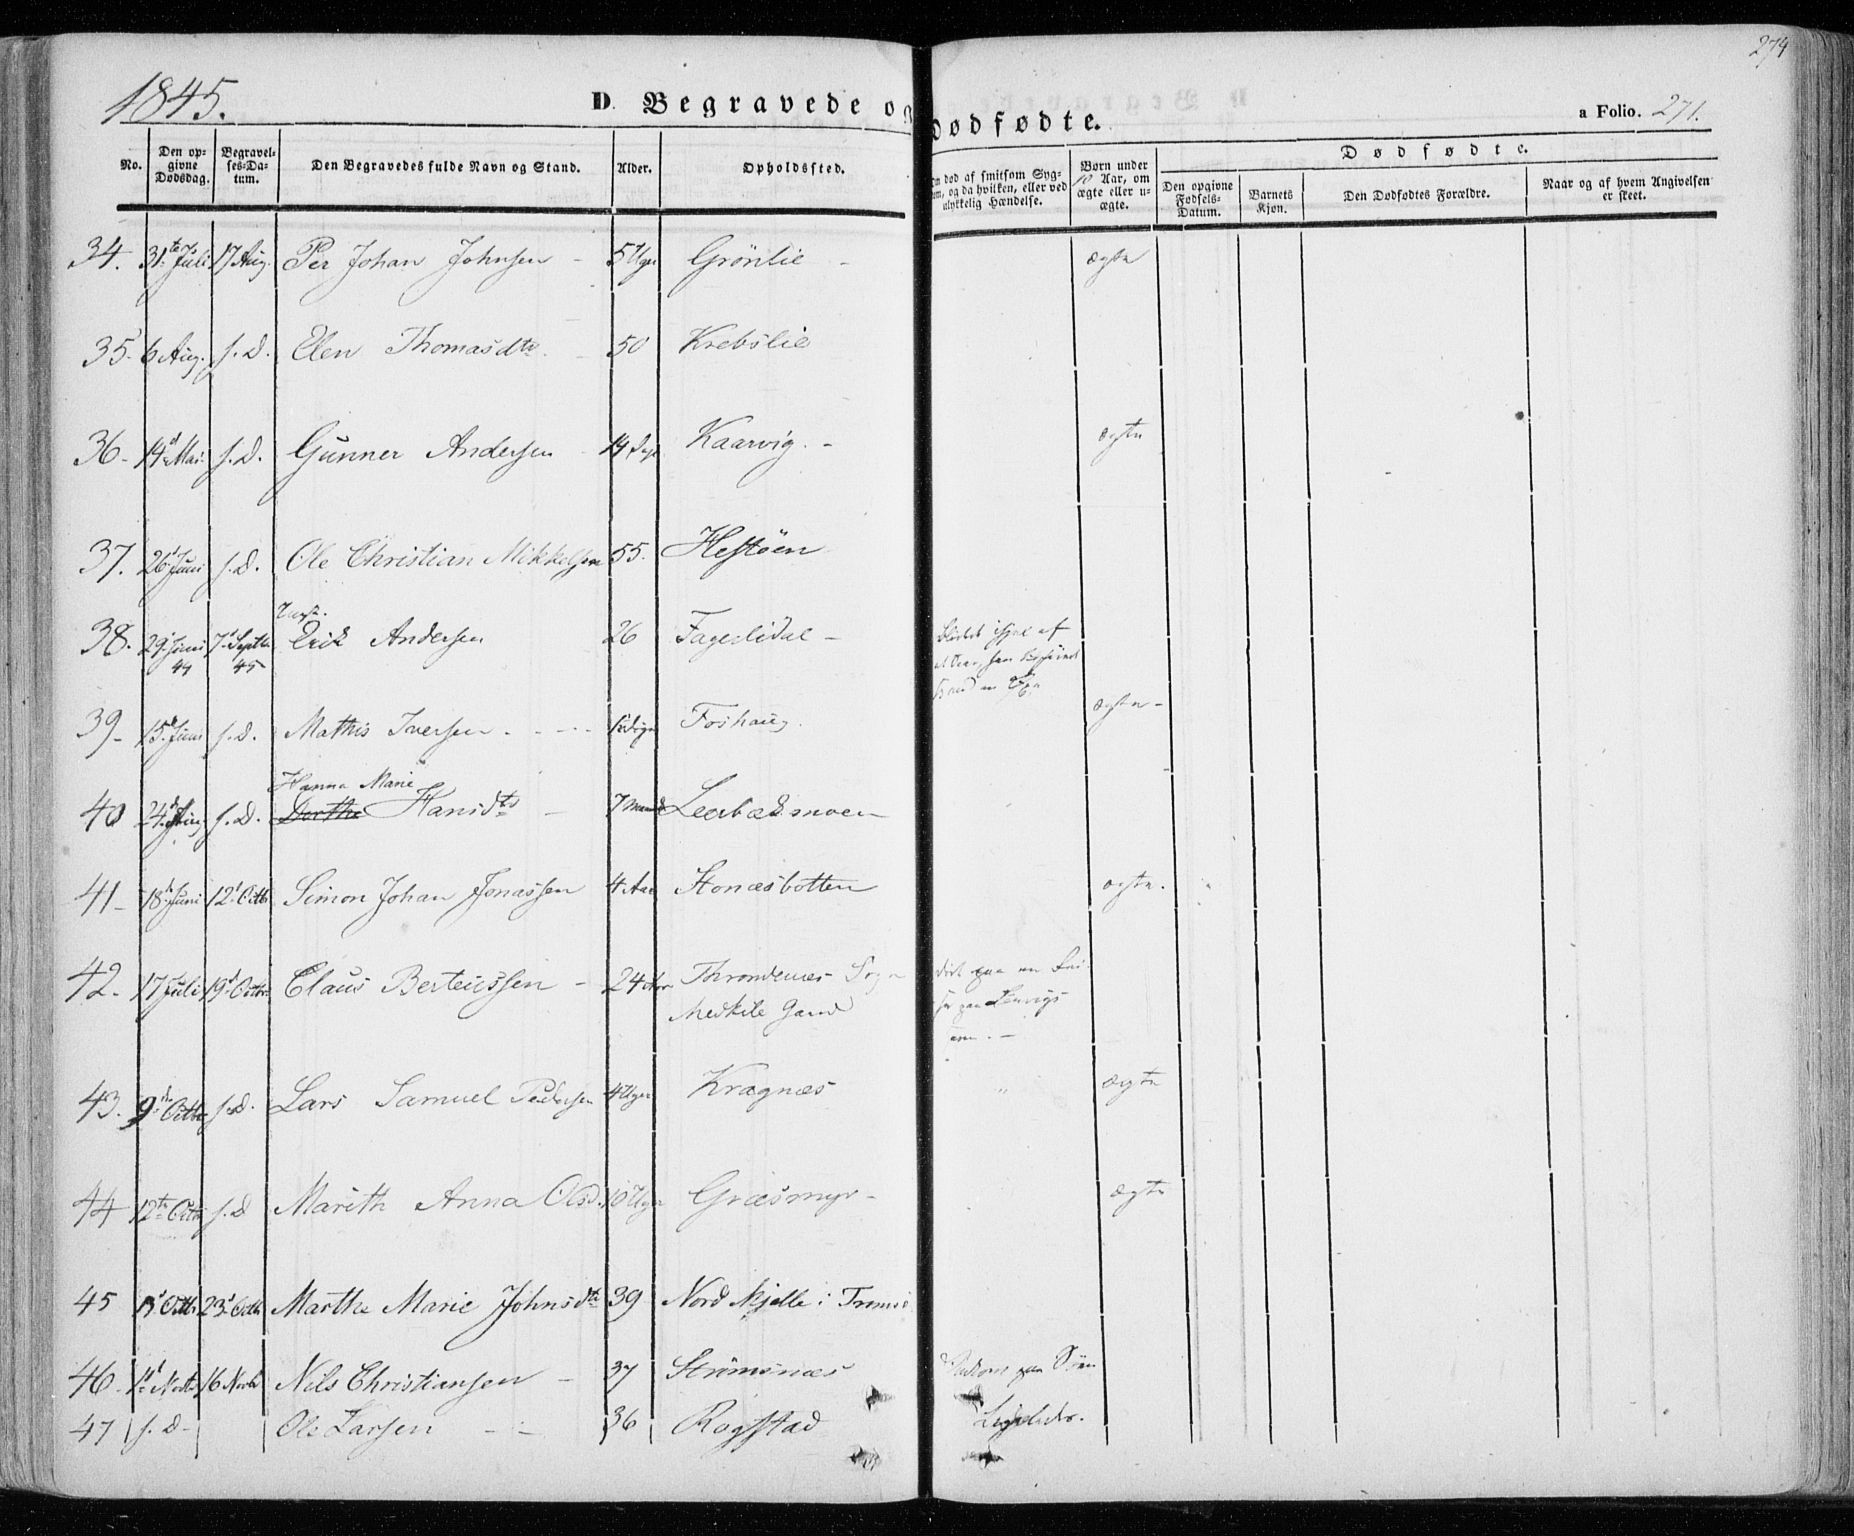 1845.
D. Begravede og Dødfødte.
a Folio. 271.
274
No.
Den opgivne Dødsdag.
Begravelses-Datum.
Den Begravedes fulde Navn og Stand.
Alder.
Opholdssted.
død af smitsom Syg-
og da hvilken, eller ved
ulykkelig Hændelse.
Børn under
10 Aar, om
ægte eller u-
ægte.
Dødfødte.
Den opgivne Fødsels-Datum.
Barnets Kjøn.
Den Dødfødtes Forældre.
Naar og af hvem Angivelsen er skeet.
34. 31te Juli 17 Aug. Per Johan Johnsen - 5 Uger Grønlie - ægte
35. 6 Aug. s. D. Elen Thomasdtr. - 50 Krebslie
36 - 14d Mai s. D. Gunner Andersen 14 Dage Kaarvig. - ægte
37. 26d Juni s. D. Ole Christian Mikkelsen 55. Hestøen
38. 29 Juni 44 7d Septbr 45 Erik Andersen 26 Fagerlidal -
39 - 15d Juni s. D. Mathis Iversen - - - Foshaug. ægte -
Hanna Marie
40 24d Aug s. D. Dorthe Hansdtr - 7 Leerbæksmoen
41 - 18d Juni 12d Octbr Simon Johan Jonassen 4 Aar Stonæsbotten ægte.
42. 17 Juli 19d Octbr Claus Berteussen - 24 Aar Throndenæs Sogn
Medkile Gaard
43. 9de Octbr s. D. Lars Samuel Pedersen 4 Uger Kragnæs " ægte
44 12te Octbr s. D Marith Anna Olsd. 10 Uger Græsmyr - ægte
45 13d Octbr 23d Octbr Marthe Marie Johnsdtr 39 Nordkjelle i Tromsø
46 - 1d Novbr 16 Novbr Nils Christiansen - 37 Strømsnæs Omkom paa Søen
47 s. D - Ole Larsen - - 36 Rogstad Ligeledes.